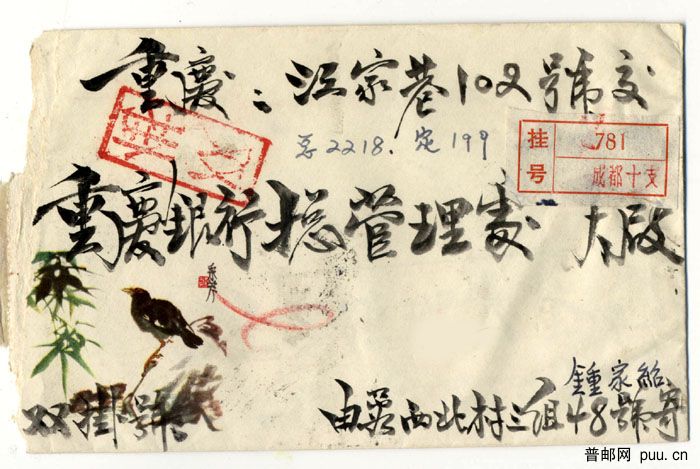 重慶：江家巷102號交
总2218.定199
挂号
781
成都十支
重慶銀行總管理處
双掛號
鍾家紹
西北村三组48號寄
普邮网 puu.cn